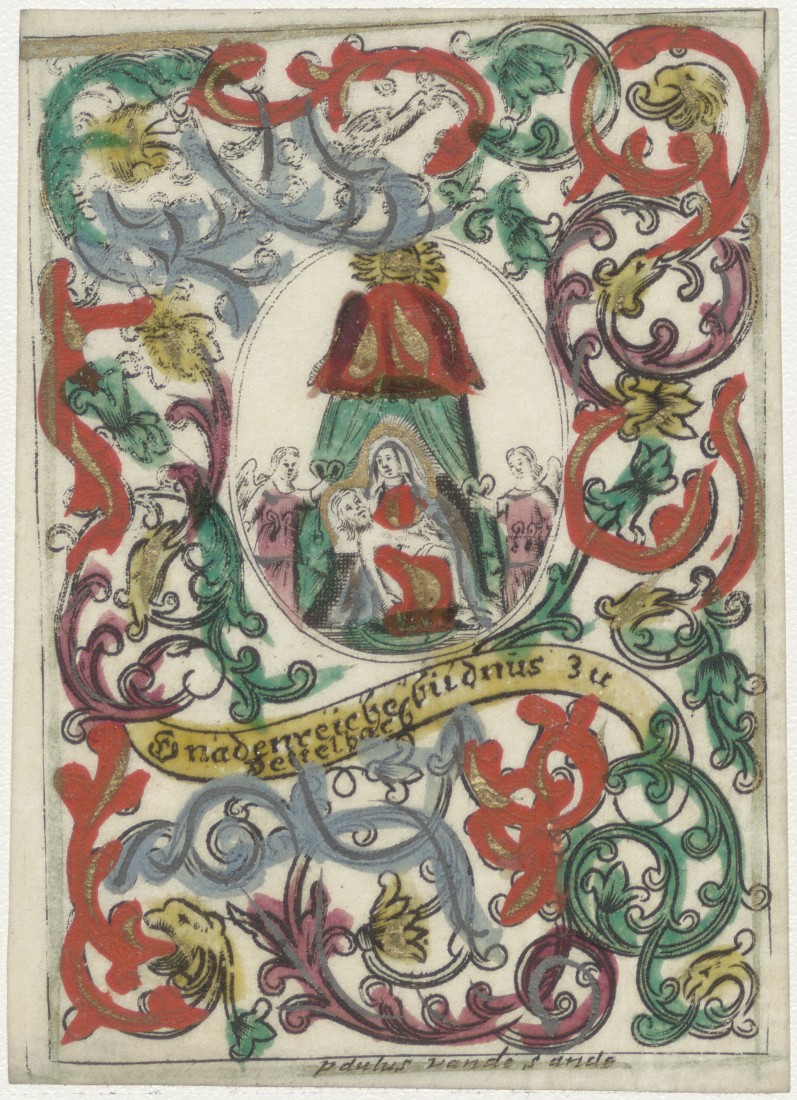 Gnadenreiche bildnus zu
dettelbach
paulus vande sande